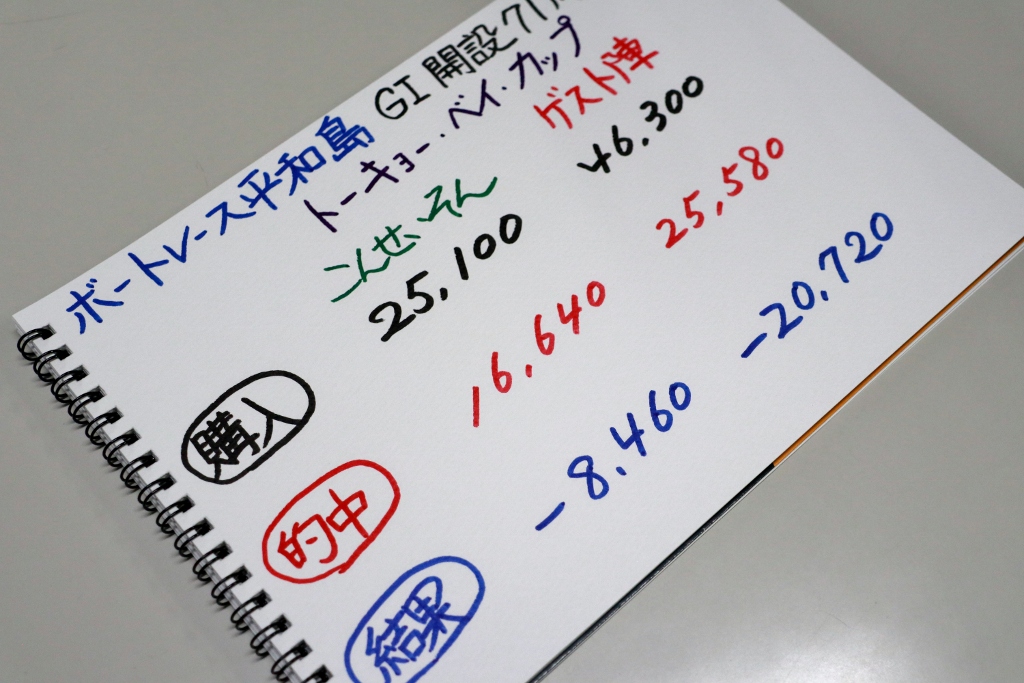 ボートレース平和島 GI 開設71
トーキョー・ベイ・カップ
こんせ、そん ゲスト陣
購入 25,100 46,300
的中 16,640 25,580
結果 -8,460 -20,720